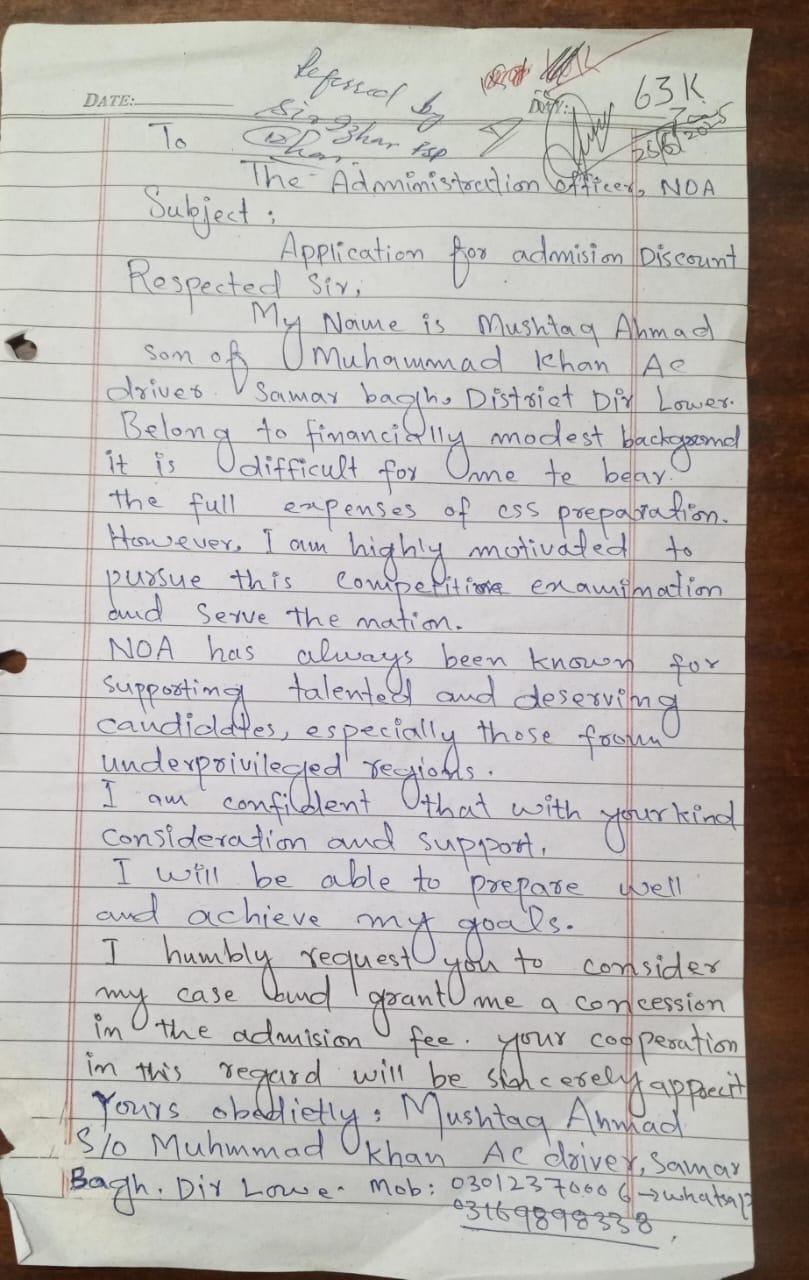 Referred by
DATE:
DAY:
63K
Sir Izhar PSP
Khan
25/5/2025
To
The Administration officer, NOA
Subject :
Application for admision Discount
Respected Sir,
My Name is Mushtaq Ahmad
son of Muhammad Khan Ac
driver Samar bagh, District Dir Lower.
Belong to financially modest background
it is difficult for me te bear
the full expenses of css preparation.
However, I am highly motivated to
pursue this competitive examination
and serve the nation.
NOA has always been known for
supporting talented and deserving
candidates, especially those from
underprivileged regions.
I am confident that with your kind
consideration and support,
I will be able to prepare well
and achieve my goals.
I humbly request you to consider
my case and grant me a concession
in the admision fee. your cooperation
in this regard will be sincerely apprecit
Yours obedietly, Mushtaq Ahmad
S/o Muhmmad Khan AC driver, Samar
Bagh. Dir Lowe- Mob: 03012370006 → whatsap
03169898338